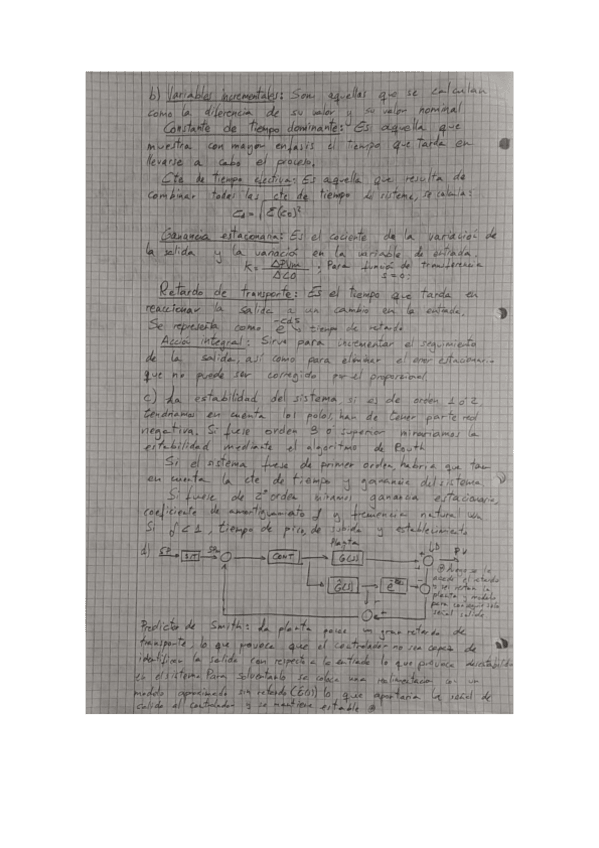 b) Variables incrementales: Son aquellas que se calculan
como la diferencia de su valor y su valor nominal
Constante de tiempo dominante: Es aquella que
muestra con mayor enfasis el tiempo que tarda en
llevarse a cabo el proceso.
Cte de tiempo efectiva: Es aquella que resulta de
combinar todas las cte de tiempo del sistema, se calcula:
Ganancia estacionaria: Es el cociente de la variación de
la salida y la variación en la variable de entrada.
K = ΔPVm / ΔCO ; Para función de transferencia
s=0:
Retardo de transporte: Es el tiempo que tarda en
reaccionar la salida a un cambio en la entrada.
Se representa como tiempo de retardo
Acción integral: Sirve para incrementar el seguimiento
de la salida, así como para eliminar el error estacionario
que no puede ser corregido por el proporcional
c) La estabilidad del sistema si es de orden 1 o 2
tendriamos en cuenta los polos, han de tener parte real
negativa. Si fuese orden 3 ó superior miraríamos la
estabilidad mediante el algoritmo de Routh
Si el sistema fuese de primer orden, habria que
en cuenta la cte de tiempo y ganancia del sistema
Si fuese de 2º orden miramos ganancia estacionaria,
coeficiente de amortiguamiento δ y frecuencia natural
Si δ<1, tiempo de pico, de subida y establecimiento
Planta
d) SP CONT G(s) PV
G(s)
Predictor de Smith: La planta posee un gran retardo de
transporte, lo que provoca que el controlador no sea capaz de
identificar la salida con respecto a la entrada lo que provoca
en el sistema. Para solventarlo se coloca una realimentación con un
modelo aproximado sin retardo (G(s)) lo que aportaria la señal de
salida al controlador y se mantiene estable